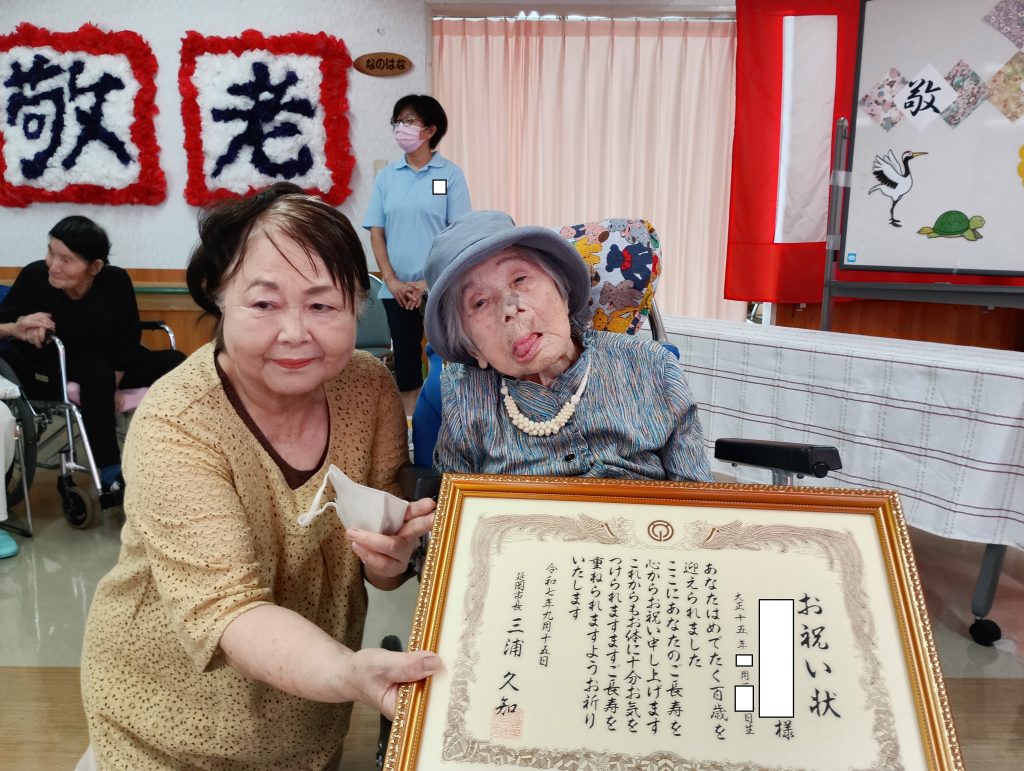 敬
老
なのはな
敬
お祝い状
様
大正十五年 月 日生
あなたはめでたく百歳を
迎えられました
ここにあなたのご長寿を
心からお祝い申し上げます
これからもお体に十分お気を
つけられますますご長寿を
重ねられますようお祈り
いたします
令和七年九月十五日
延岡市長 三浦久知